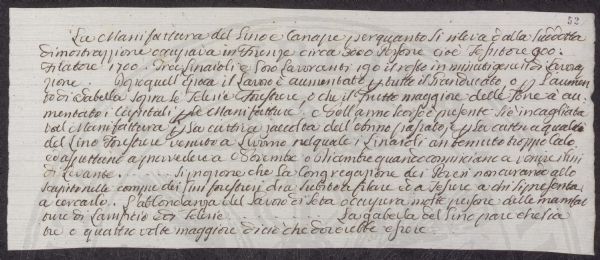 52
La Manifattura del Lino e Canape, per quanto si rileva dalla suddetta
dimostrazione occupava in Firenze circa 3000 Persone cioè Tessitore 900:
Filatore 1700. Tra Linaioli e loro Lavoranti 190 il resto in minuti generi di Lavora
zione. Da quell'Epoca il Lavoro è aumentato p tutto il Granducato, o p l'aumen
to di Gabella sopra le Telerie Forestiere, o che il frutto maggiore delle Fiere à au
mentato i Capitali p le Manifatture e nell'anno scorso e presente si è incagliata
tal Manifattura p la cattiva raccolta del 
del Lino Forestiero venuto a Livorno nel quale i Linaioli an tenuto troppo calo
e aspettano a provvedersi a Novembre o Dicembre quando cominciano a venire i lini
di Levante. Si propone che la Congregazione dei Poveri non curando allo
scapito nelle compre dei lini forestieri dia subito a filare ed a Tessere a chi si presenta
a cercarlo. L'abbondanza del Lavoro di Seta occupava molte persone delle manifat
ture di e di Telerie. La gabella del Lino pare che sia
tre o quattro volte maggiore di ciò che dovrebbe essere.